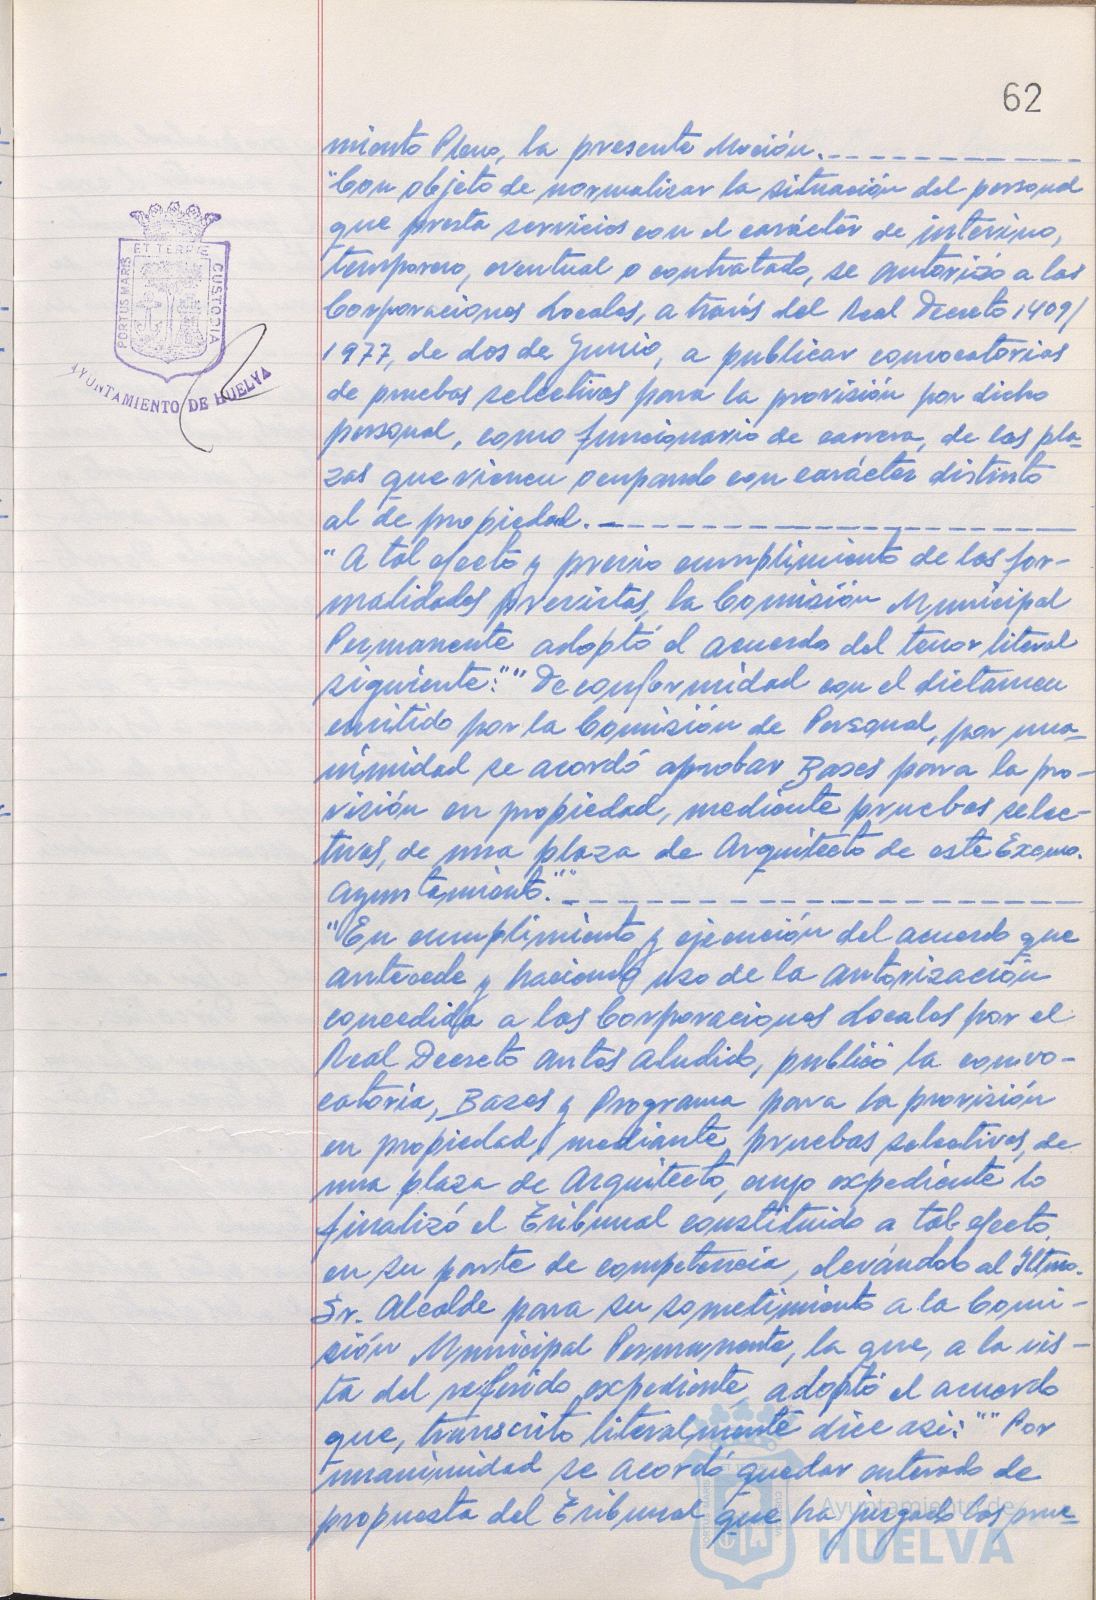 62
miento Pleno, la presente Moción.
"Con objeto de normalizar la situación del personal
que presta servicios con el carácter de interino,
temporero, eventual o contratado, se autorizó a las
Corporaciones Locales, a través del Real Decreto 1409/
1977, de dos de Junio, a publicar convocatorias
de pruebas selectivas para la provisión por dicho
personal, como funcionario de carrera, de las pla=
zas que vienen ocupando con carácter distinto
al de propiedad.
"A tal efecto y previo cumplimiento de las for-
malidades previstas, la Comisión Municipal
Permanente adoptó el acuerdo del tenor literal
siguiente:"" De conformidad con el dictamen
emitido por la Comisión de Personal, por una=
nimidad se acordó aprobar Bases para la pro-
visión en propiedad, mediante pruebas selec-
tivas, de una plaza de Arquitecto de este Excmo.
Ayuntamiento.""
"En cumplimiento y ejecución del acuerdo que
antecede y haciendo uso de la autorización
concedida a las Corporaciones Locales por el
Real Decreto antes aludido, publicó la convo-
catoria, Bases y Programa para la provisión
en propiedad, mediante pruebas selectivas, de
una plaza de Arquitecto, cuyo expediente lo
finalizó el Tribunal constituido a tal efecto,
en su parte de competencia, elevándolo al Iltmo.
Sr. Alcalde para su sometimiento a la Comi-
sión Municipal Permanente, la que, a la vis-
ta del referido expediente, adoptó el acuerdo
que, transcrito literalmente dice así:"" Por
unanimidad se acordó quedar enterado de
propuesta del Tribunal que ha juzgado las prue=
PORTUS MARIS ET TERRE CUSTODIA
AYUNTAMIENTO DE HUELVA
Ayuntamiento de
HUELVA